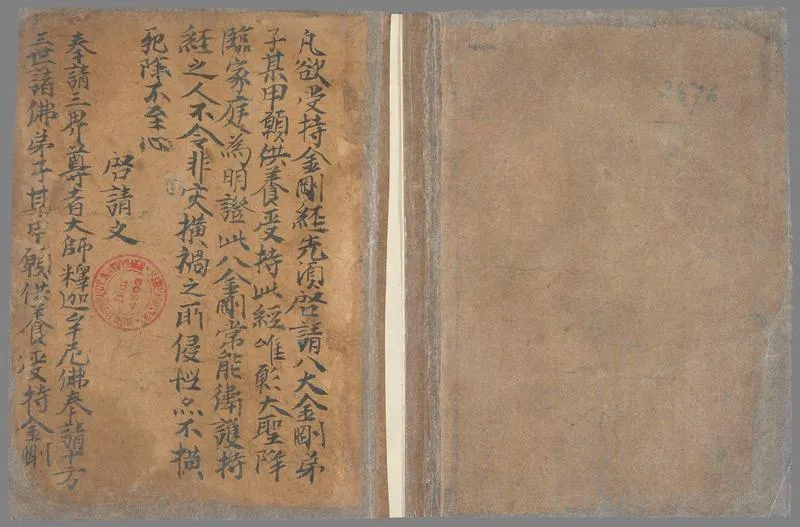 凡欲受持金剛經先須啓請八大金剛弟
子某甲願供養受持此經唯願大聖降
臨家庭為明證此八金剛常能衛護持
經之人不令非灾横禍之所侵惱亦不横
死除不至心
啓請文
奉請三界尊者大師釋迦牟尼佛奉請十方
三世諸佛弟子某甲願供養受持金剛